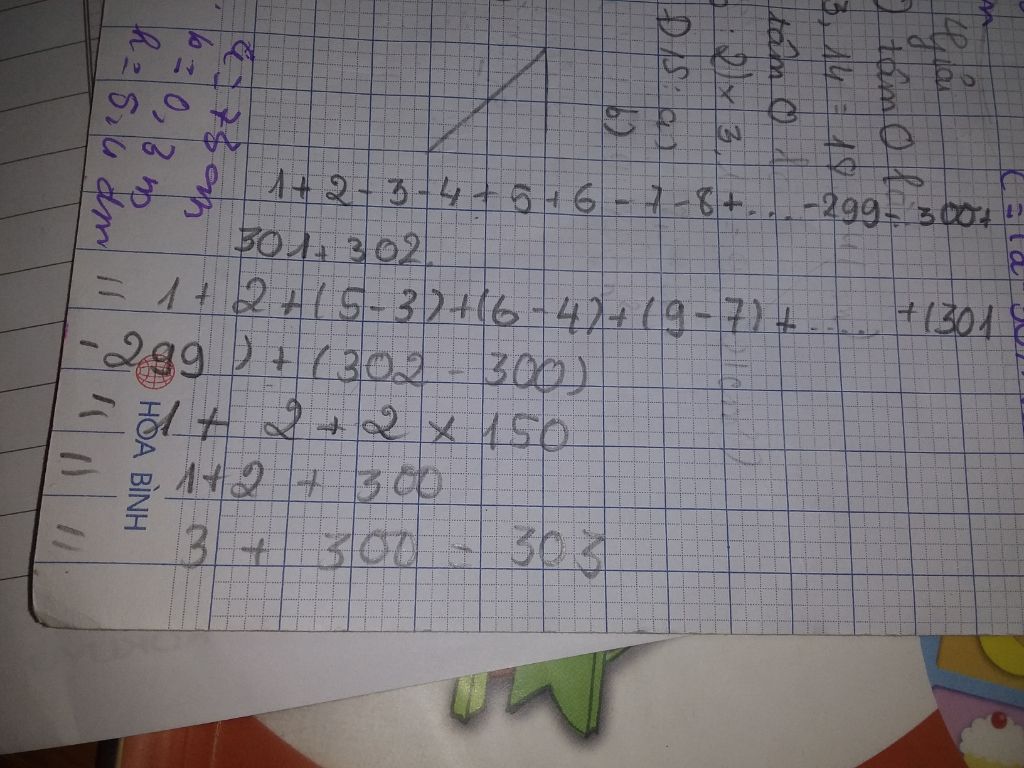 1+2-3-4+5+6-7-8+.....-299-300+
301+302.
= 1+2+(5-3)+(6-4)+(9-7)+...... +(301
-299)+(302-300)
= 1+2+2×150
= 1+2+300
= 3+300=303
HÒA BÌNH
78 cm
b = 0,3 m
h = 5,4 dm
tâm O
3,14 =
tâm O
.2)× 3,
Đ/S: a)
b)